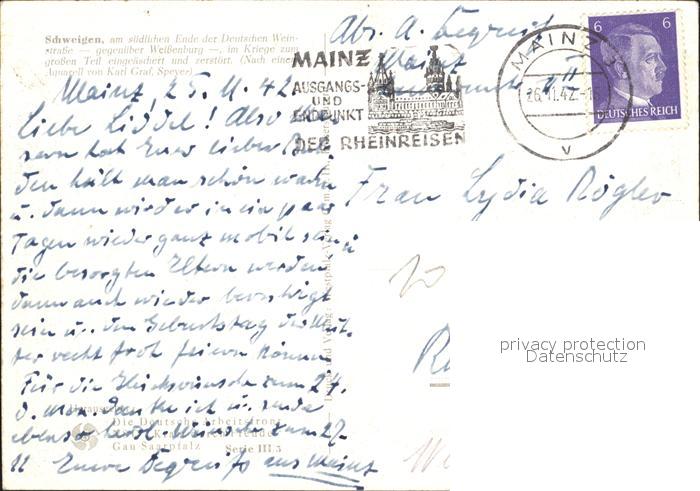 Schweigen, am südlichen Ende der Deutschen Wein-
straße — gegenüber Weißenburg —, im Kriege zum
großen Teil eingeäschert und zerstört. (Nach einem
Aquarell von Karl Graf, Speyer)
Abs. A. Begreifs
Mainz
MAINZ
AUSGANGS-
UND
ENDPUNKT
DER RHEINREISEN
MAINZ
26.11.42
v
6 6
DEUTSCHES REICH
Mainz, 25. 11. 42
Liebe Liddel! Also
hat Euer lieber
den hält man schön warm
u. dann wird er in ein paar
Tagen wieder ganz mobil sein u
die besorgten Eltern werden
dann auch wieder beruhigt
sein u. den Geburtstag der Mut-
ter recht froh feiern können
Für die Glückwünsche zum 24.
d. Mon. danke ich u. sende
ebenso herzl. Wünsche zum 27.
11 Eure Begreifs aus Mainz
Frau Lydia Rögler
Die Deutsche Arbeitsfront
Gau Saarpfalz Serie III/3
privacy protection
Datenschutz